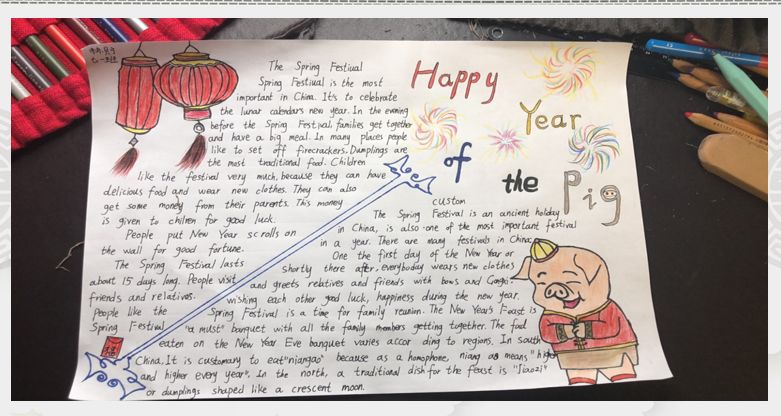 Happy
Year
of
the
Pig
The Spring Festival
Spring Festival is the most
important in China. It's to celebrate
the lunar calendar's new year. In the evening
before the Spring Festival, families get together
and have a big meal. In many places people
like to set off firecrackers. Dumplings are
the most traditional food. Children
like the festival very much, because they can have
delicious food and wear new clothes. They can also
get some money from their parents. This money
is given to chilren for good luck.
People put New Year scrolls on
the wall for good fortune.
The Spring Festival lasts
about 15 days long. People visit
friends and relatives.
People like the
Spring Festival
custom
The Spring Festival is an ancient holiday
in China, is also one of the most important festival
in a year. There are many festivals in China;
One the first day of the New Year or
shortly there after, everybody wears new clothes
and greets relatives and friends with bows and Gongxi.
wishing each other good luck, happiness during the new year.
Spring Festival is a time for family reunion. The New Year's Feast is
"a must" banquet with all the family members getting together. The food
eaten on the New Year Eve banquet varies accor ding to regions. In South
China, It is customary to eat "niangao" because as a homophone, niang ao means "higher
and higher every year". In the north, a traditional dish for the feast is "Jiaozi"
or dumplings shaped like a crescent moon.
福